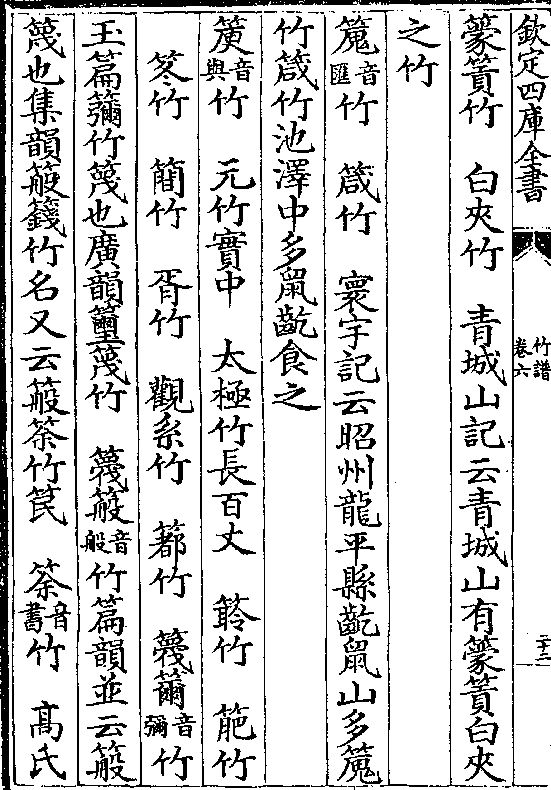 欽定四庫全書
竹譜
卷六
二十二
篸簣竹　白夾竹　青城山記云青城山有篸簣白夾
之竹
篼音匯竹　箴竹　寰宇記云昭州龍平縣齕鼠山多篼
竹箴竹池澤中多鼠齕食之
簾音與竹　元竹實中　太極竹長百丈　笭竹　葩竹
笗竹　簡竹　胥竹　觀糸竹　䈃竹　篾䉲音彌竹
玉篇䉲竹篾也廣韻䉲篾竹　篾䈲音般竹篇韻並云䈲
篾也集韻䈲籛竹名又云䈲筡竹笢　筡音書竹　髙氏